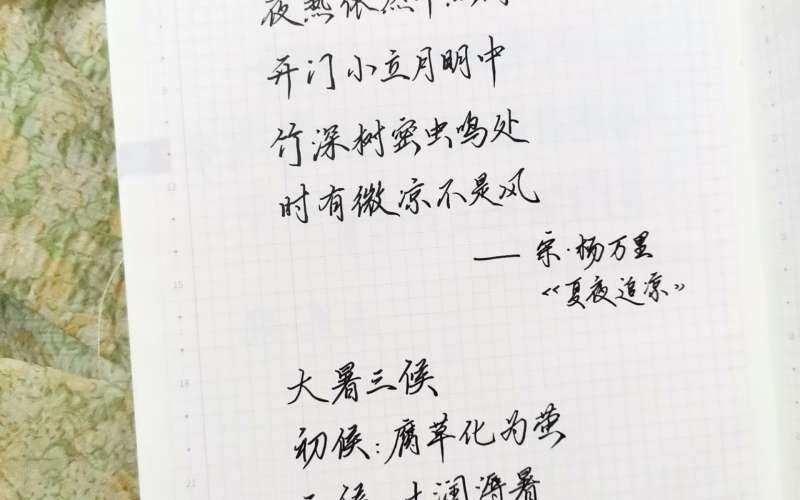 夜热依然午热同
开门小立月明中
竹深树密虫鸣处
时有微凉不是风
—— 宋·杨万里
《夏夜追凉》
大暑三候
初候:腐草化为萤
二候:土润溽暑
12
15
18
21